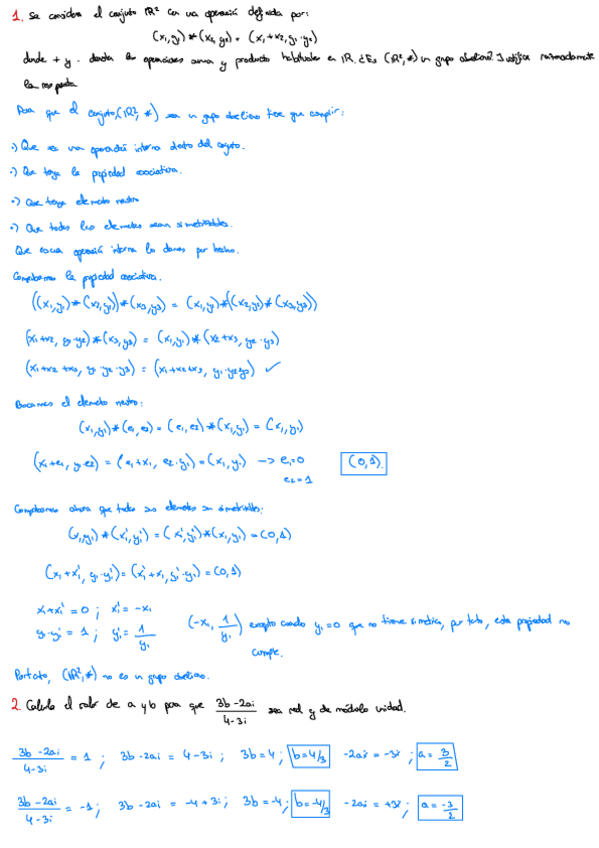 1. Se considera el conjunto IR² con una operación definida por:
(x₁,y₁)*(x₂,y₂) = (x₁+x₂, y₁·y₂)
donde + y · denota las operaciones suma y producto habituales en IR. ¿Es (IR²,*) un grupo abeliano? Justifica razonadamente
la respuesta
Para que el conjunto (IR²,*) sea un grupo abeliano tiene que cumplir:
·) Que es una operación interna dentro del conjunto.
·) Que tenga la propiedad asociativa.
·) Que tenga elemento neutro
·) Que todos los elementos sean simetrizables.
Que es una operación interna lo damos por hecho.
Comprobamos la propiedad asociativa.
((x₁,y₁)*(x₂,y₂))*(x₃,y₃) = (x₁,y₁)*((x₂,y₂)*(x₃,y₃))
(x₁+x₂, y₁·y₂)*(x₃,y₃) = (x₁,y₁)*(x₂+x₃, y₂·y₃)
(x₁+x₂+x₃, y₁·y₂·y₃) = (x₁+x₂+x₃, y₁·y₂y₃) ✓
Buscamos el elemento neutro:
(x₁,y₁)*(e₁,e₂) = (e₁,e₂)*(x₁,y₁) = (x₁,y₁)
(x₁+e₁, y₁·e₂) = (e₁+x₁, e₂·y₁) = (x₁,y₁) –> e₁=0 (0,1).
e₂=1
Comprobamos ahora que todos sus elementos son simetrizables:
(x₁,y₁)*(x₁',y₁') = (x₁',y₁')*(x₁,y₁) = (0,1)
(x₁+x₁', y₁·y₁') = (x₁'+x₁, y₁'·y₁) = (0,1)
x₁+x₁' = 0 ; x₁' = -x₁
y₁·y₁' = 1 ; y₁' = 1/y₁ (-x₁, 1/y₁) excepto cuando y₁=0 que no tiene simétrica, por tanto, esta propiedad no
cumple.
Por tanto, (IR²,*) no es un grupo abeliano.
2. Calcula el valor de a y b para que (3b-2ai)/(4-3i) sea real y de módulo unidad.
(3b-2ai)/(4-3i) = 1 ; 3b-2ai = 4-3i ; 3b=4 ; b=4/3 -2ai = -3i ; a = 3/2
(3b-2ai)/(4-3i) = -1 ; 3b-2ai = -4+3i ; 3b=-4 ; b=-4/3 -2ai = +3i ; a = -3/2